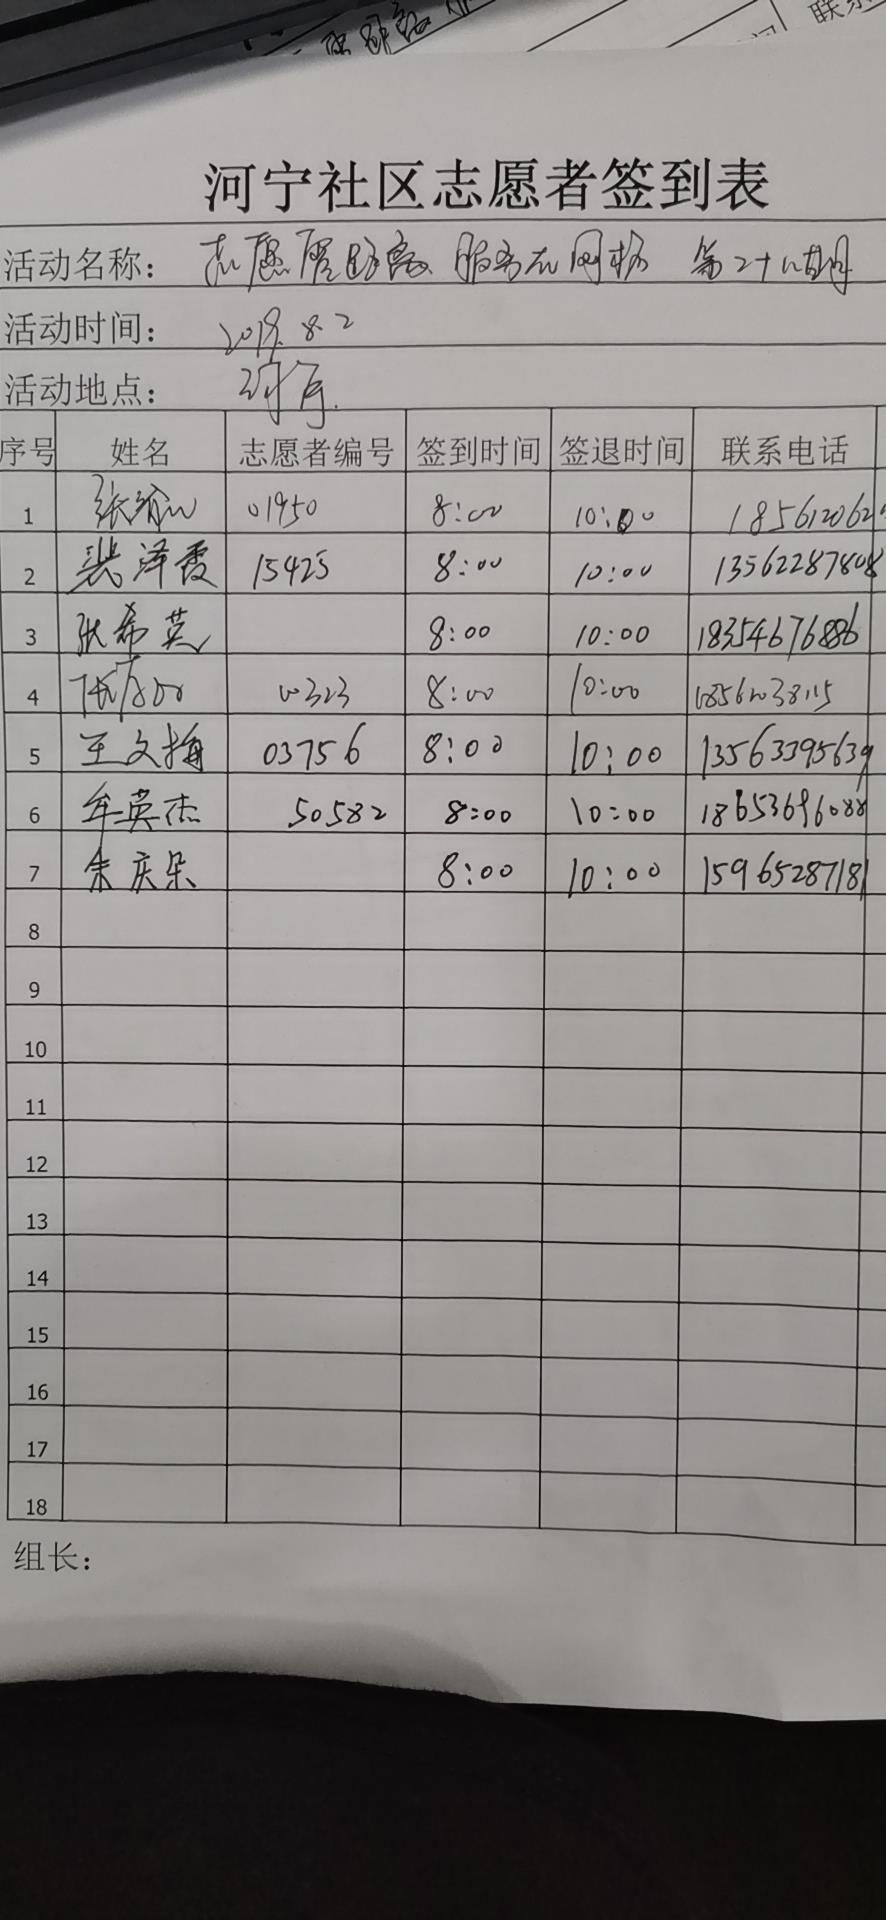 联系
河宁社区志愿者签到表
活动名称： 志愿零距离 服务在网格 第二十八期
活动时间： 2019.8.2
活动地点：
序号 姓名 志愿者编号 签到时间 签退时间 联系电话
1 01950 8:00 10:00 185612062
2 裴泽霞 15425 8:00 10:00 13562287808
3 耿希英 8:00 10:00 18354676886
4 00323 8:00 10:00
5 王文梅 03756 8:00 10:00 13563395639
6 牟英杰 50582 8:00 10:00 18653696088
7 朱庆朵 8:00 10:00 15965287181
8
9
10
11
12
13
14
15
16
17
18
组长：